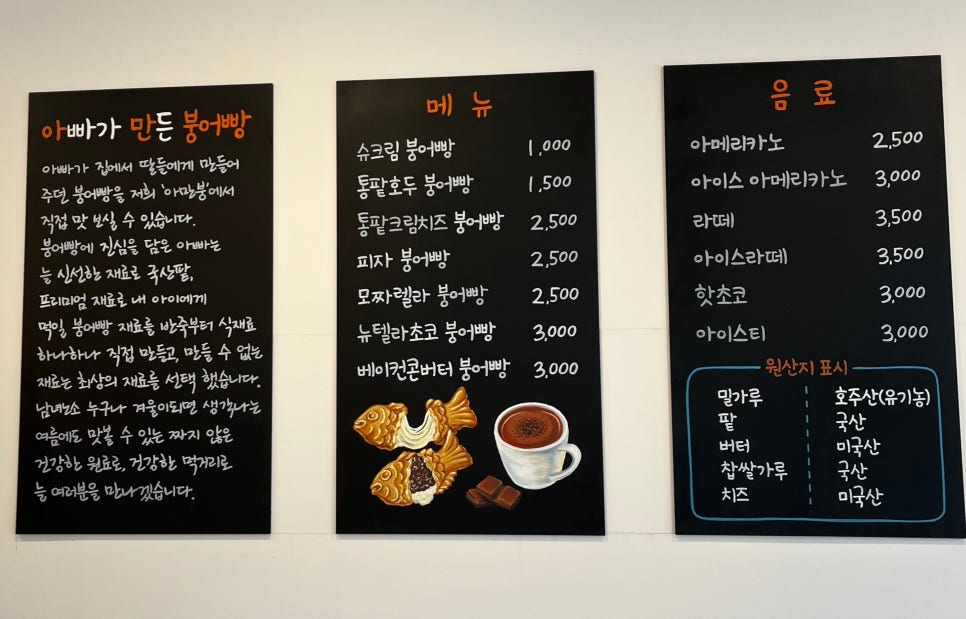 아빠가 만든 붕어빵
아빠가 집에서 딸들에게 만들어
주던 붕어빵을 저희 '아만붕'에서
직접 맛 보실 수 있습니다.
붕어빵에 진심을 담은 아빠는
늘 신선한 재료로 국산팥,
프리미엄 재료로 내 아이에게
먹일 붕어빵 재료를 반죽부터 식재료
하나하나 직접 만들고, 만들 수 없는
재료는 최상의 재료를 선택 했습니다.
남녀노소 누구나 겨울이되면 생각나는
여름에도 맛볼 수 있는 짜지 않은
건강한 원료로, 건강한 먹거리로
늘 여러분을 만나겠습니다.
메뉴
슈크림 붕어빵 1,000
통팥호두 붕어빵 1,500
통팥크림치즈 붕어빵 2,500
피자 붕어빵 2,500
모짜렐라 붕어빵 2,500
뉴텔라초코 붕어빵 3,000
베이컨콘버터 붕어빵 3,000
음료
아메리카노 2,500
아이스 아메리카노 3,000
라떼 3,500
아이스라떼 3,500
핫초코 3,000
아이스티 3,000
원산지 표시
밀가루 호주산(유기농)
팥 국산
버터 미국산
찹쌀가루 국산
치즈 미국산